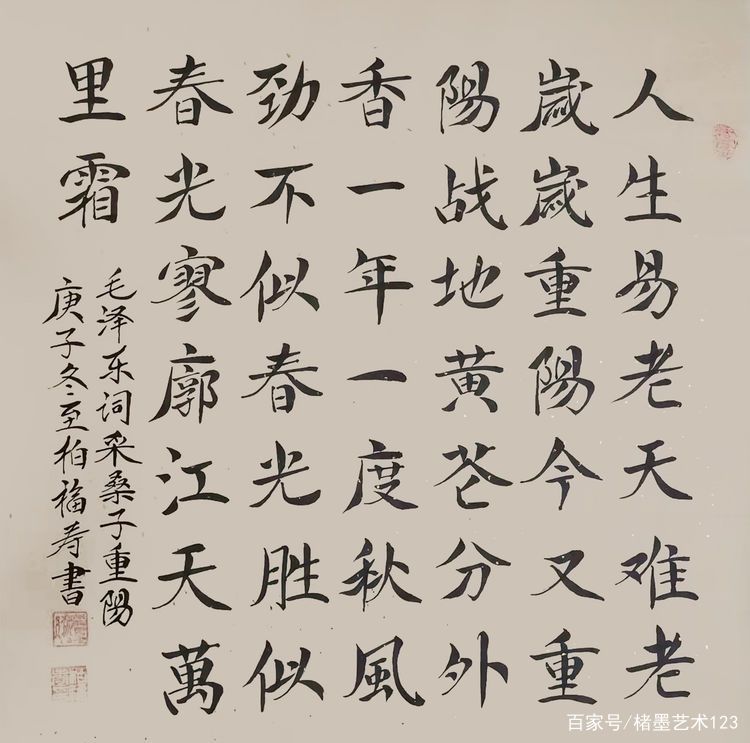 人生易老天难老
歲歲重陽今又重
陽战地黄花分外
香一年一度秋風
劲不似春光胜似
春光寥廓江天萬
里霜
毛泽东词采桑子重陽
庚子冬至柏福寿書
百家号/楮墨艺术123